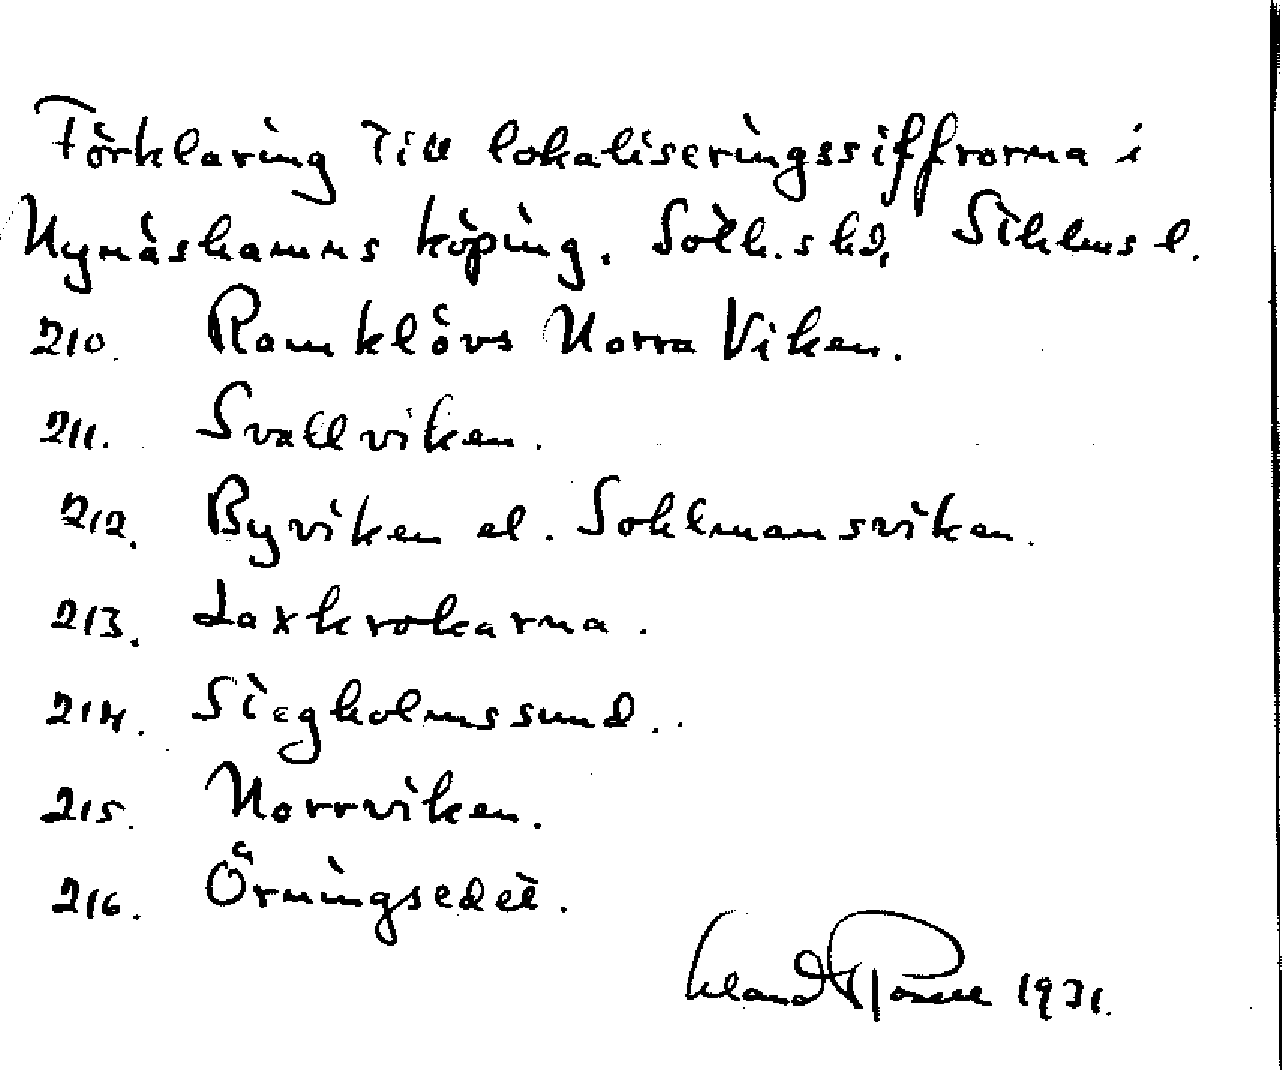 Förklaring till lokaliseringssiffrorna i
Nynäshamns köping. Soth. skd, Sthlms l.
210. Ramklövs Norra Viken.
211. Svallviken.
212. Byviken el. Sohlmansviken.
213. Laxkrokarna.
214. Stegholmssund.
215. Norrviken.
216. Örningsedet.
1931.